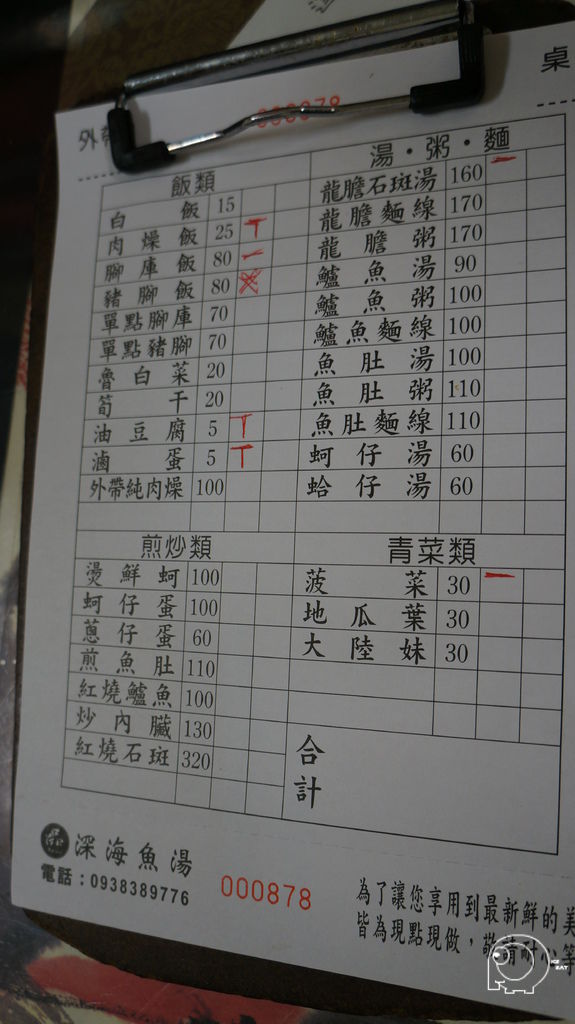 桌
外帶
000878
飯類
白飯 15
肉燥飯 25 T
腳庫飯 80 一
豬腳飯 80
單點腳庫 70
單點豬腳 70
魯白菜 20
筍干 20
油豆腐 5 T
滷蛋 5 T
外帶純肉燥 100
湯·粥·麵
龍膽石斑湯 160 一
龍膽麵線 170
龍膽粥 170
鱸魚湯 90
鱸魚粥 100
鱸魚麵線 100
魚肚湯 100
魚肚粥 110
魚肚麵線 110
蚵仔湯 60
蛤仔湯 60
煎炒類
燙鮮蚵 100
蚵仔蛋 100
蔥仔蛋 60
煎魚肚 110
紅燒鱸魚 100
炒內臟 130
紅燒石斑 320
青菜類
菠菜 30 一
地瓜葉 30
大陸妹 30
合計
深海魚湯
電話：0938389776
000878
為了讓您享用到最新鮮的美
皆為現點現做，敬請耐心等